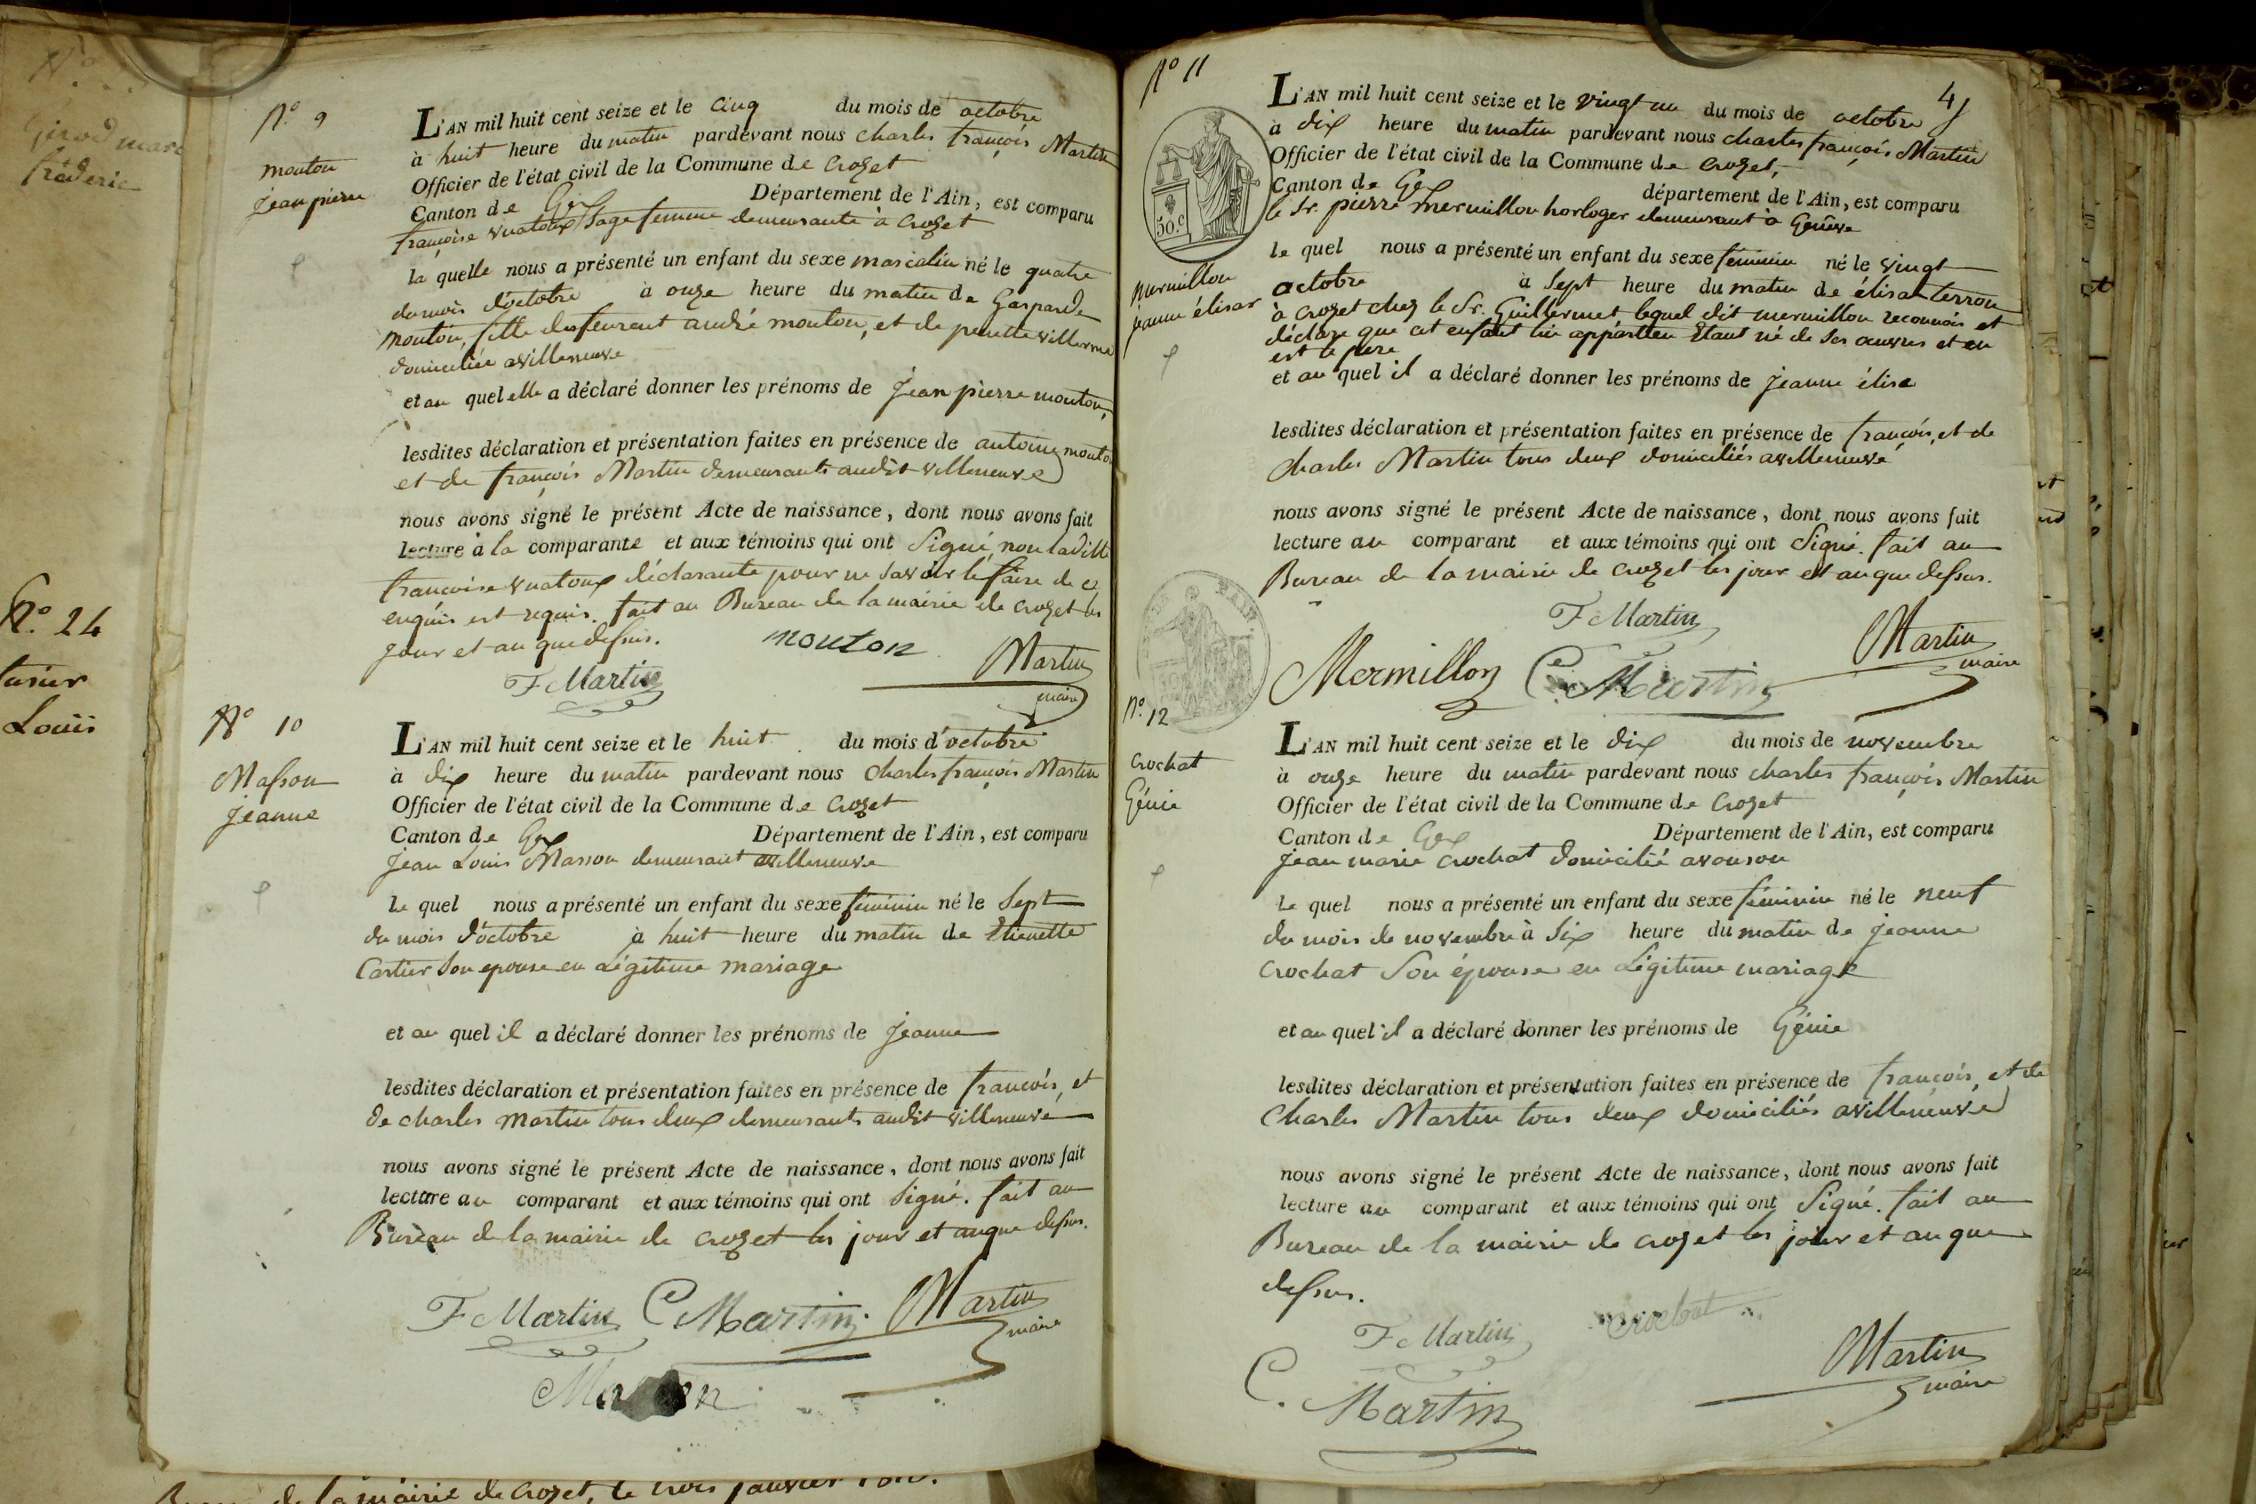 Girod marc
fréderic
N.° 24
Louis
N.° 9
mouton
Jean pierre
L'AN mil huit cent seize et le cinq du mois de octobre
à huit heure du matin pardevant nous charles françois Martin
Officier de l'état civil de la Commune de crozet
Canton de Gex Département de l'Ain, est comparu
françoise vuatoux sage femme demeurante à crozet
la quelle nous a présenté un enfant du sexe masculin né le quatre
du mois d'octobre à onze heure du matin de Gasparde
mouton, fille de feu andré mouton, et de
domiciliée a villeneuve
et au quel elle a déclaré donner les prénoms de jean pierre mouton,
lesdites déclaration et présentation faites en présence de antoine mouton
et de françois Martin demeurants audit villeneuve
nous avons signé le présent Acte de naissance, dont nous avons fait
lecture à la comparante et aux témoins qui ont signé, non ladite
francoise vuatoux déclarante pour ne savoir le faire de ce
enquis et requis. fait au Bureau de la mairie de crozet les
jour et an que dessus.
mouton
Martin
maire
F Martin
N° 10
Masson
jeanne
L'AN mil huit cent seize et le huit du mois d'octobre
à dix heure du matin pardevant nous charles françois Martin
Officier de l'état civil de la Commune de crozet
Canton de Gex Département de l'Ain, est comparu
jean Louis Masson demeurant a villeneuve
le quel nous a présenté un enfant du sexe féminin né le sept
du mois d'octobre à huit heure du matin de Etienette
Cartier son epouse en légitime mariage
et au quel il a déclaré donner les prénoms de jeanne
lesdites déclaration et présentation faites en présence de francois, et
de charles martin tous deux demeurants audit villeneuve
nous avons signé le présent Acte de naissance, dont nous avons fait
lecture au comparant et aux témoins qui ont signé. fait au
Bureau de la mairie de crozet les jour et an que dessus.
F Martin C Martin Martin
maire
Masson
N° 11
41
50.c
mermillon
jeanne élisa
L'AN mil huit cent seize et le vingt un du mois de octobre
à dix heure du matin pardevant nous charles françois Martin
Officier de l'état civil de la Commune de crozet,
Canton de Gex département de l'Ain, est comparu
le Sr. pierre mermillon horloger demeurant à Genève
le quel nous a présenté un enfant du sexe féminin né le vingt
octobre à sept heure du matin de élisa terroux
à crozet chez le Sr. Guillermet lequel dit mermillon reconnois et
déclare que cet enfant lui appartien étant né de ses œuvres et en
est le pere
et au quel il a déclaré donner les prénoms de jeanne élise
lesdites déclaration et présentation faites en présence de françois, et de
charles Martin tous deux domiciliés a villeneuve
nous avons signé le présent Acte de naissance, dont nous avons fait
lecture au comparant et aux témoins qui ont signé. fait au
Bureau de la mairie de crozet les jour et an que dessus.
F Martin
Martin
maire
Mermillon C. Martin
N.° 12
crochat
Génie
L'AN mil huit cent seize et le dix du mois de novembre
à onze heure du matin pardevant nous charles françois Martin
Officier de l'état civil de la Commune de crozet
Canton de Gex Département de l'Ain, est comparu
jean marie crochat domicilié a vouson
le quel nous a présenté un enfant du sexe féminin né le neuf
du mois de novembre à six heure du matin de jeanne
crochat son épouse en légitime mariage
et au quel il a déclaré donner les prénoms de Génie
lesdites déclaration et présentation faites en présence de françois, et de
Charles Martin tous deux domiciliés a villeneuve
nous avons signé le présent Acte de naissance, dont nous avons fait
lecture au comparant et aux témoins qui ont signé. fait au
Bureau de la mairie de crozet les jour et an que
dessus.
F Martin crochat
Martin
maire
C. Martin
de la mairie de crozet, le trois janvier